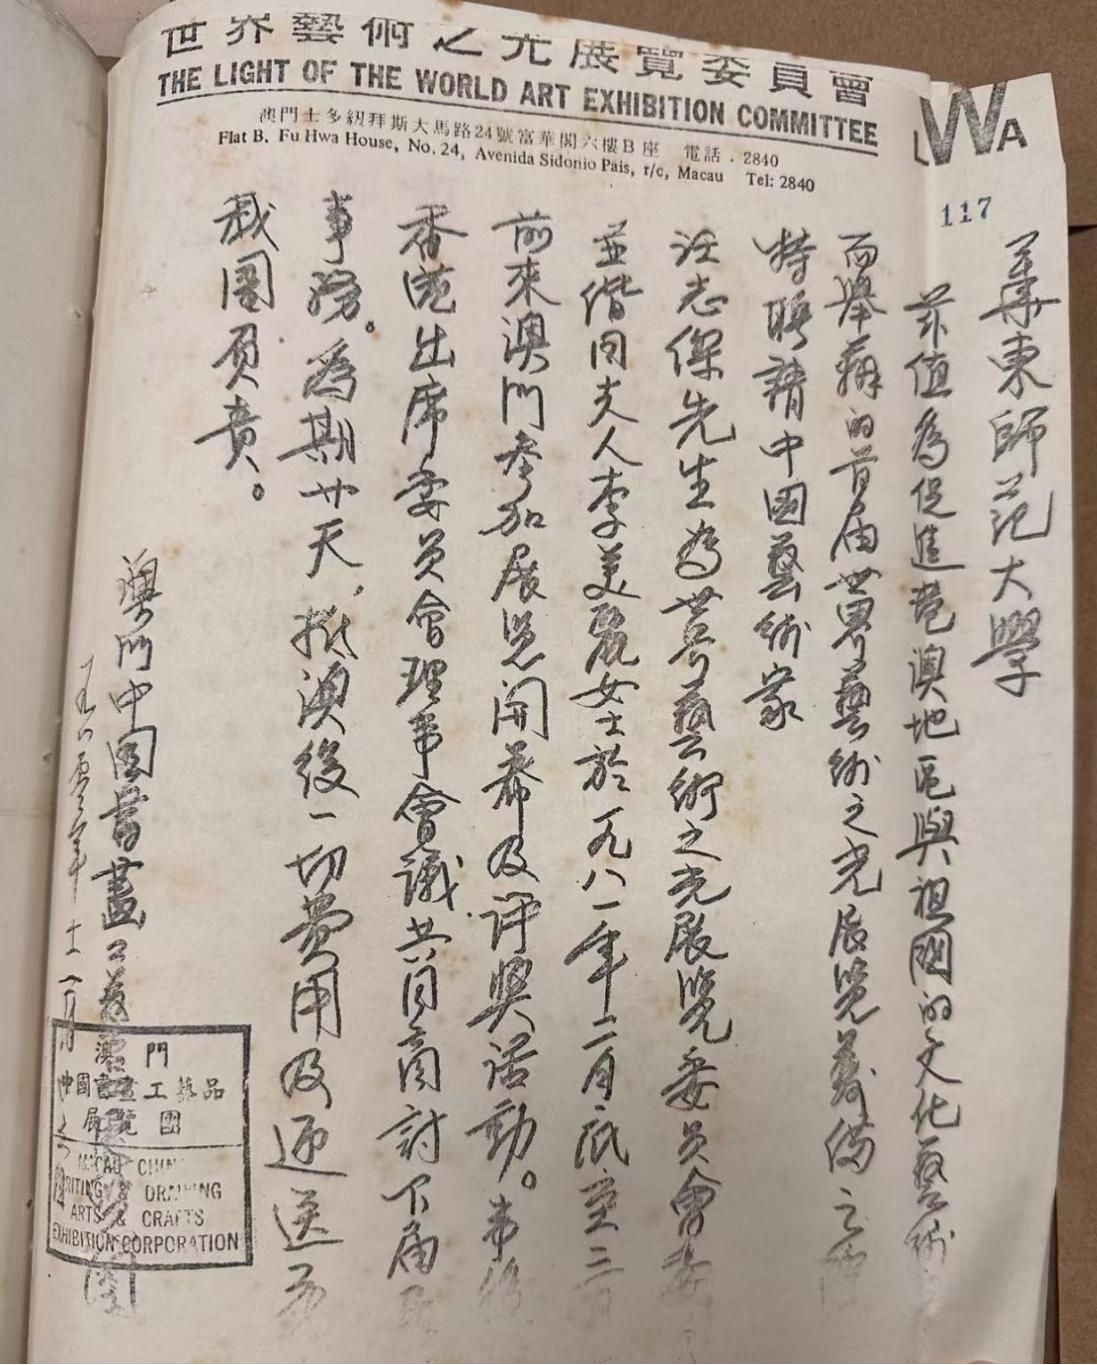 世界藝術之光展覽委員會
THE LIGHT OF THE WORLD ART EXHIBITION COMMITTEE
澳門士多紐拜斯大馬路24號富華閣六樓B座 電話．2840
Flat B, Fu Hwa House, No. 24, Avenida Sidonio Pais, r/c, Macau Tel: 2840
WA
117
華東師范大學
茲值為促進港澳地區與祖國的文化藝術
而舉辦的首届世界藝術之光展覽籌備之
特聘請中國藝術家
汪志傑先生為世界藝術之光展覽委員會委
並偕同夫人李美麗女士於一九八一年二月底至三月
前來澳門參加展览開幕及评奖活動。事後
香港出席委员會理事會議共同商討下届
事務。為期廿天，抵澳後一切費用及迎送为
我團負責。
澳門中國書畫工艺品展览團
一九八零年十二月
澳門
中國書畫工藝品
展覽團
MACAU CHIN
WRITING & DRAWING
ARTS & CRAFTS
EXHIBITION CORPORATION